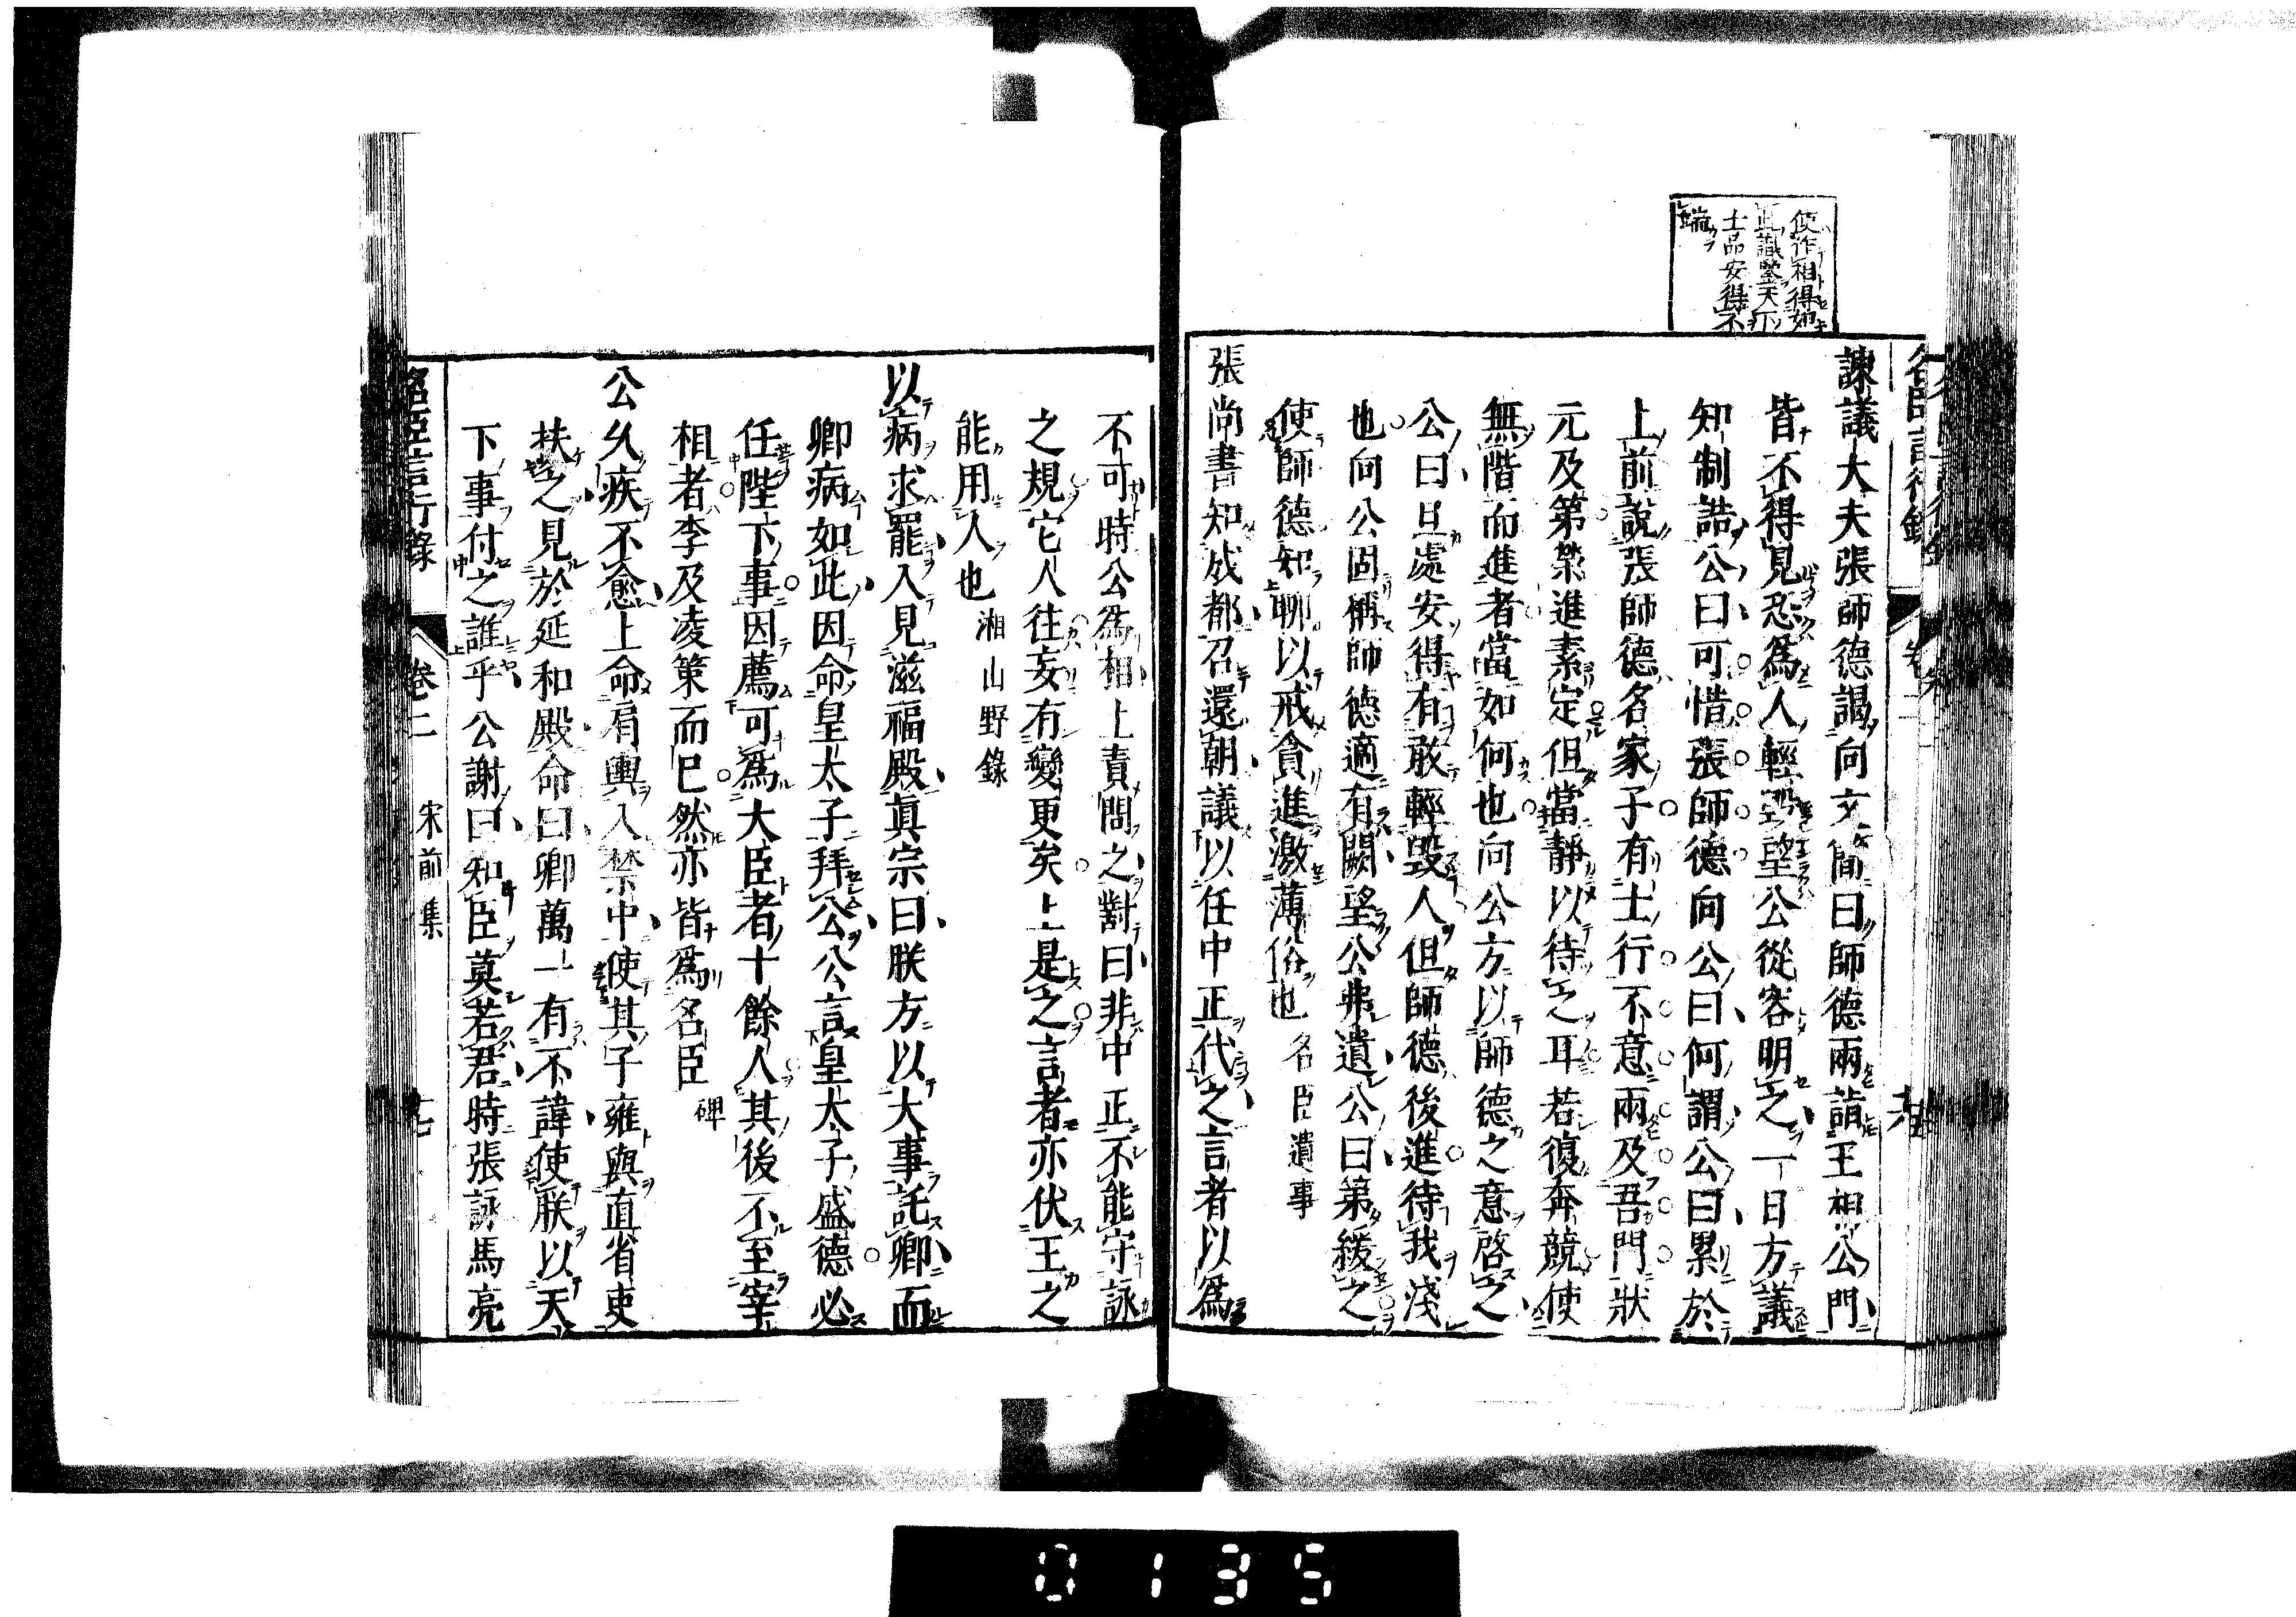 使作相得如
正識鑒天下
士品安得不
端
諫議大夫張師德謁向文簡曰師德兩詣王相公門
皆不得見恐爲人輕毀望公從容明之一日方議
知制誥公曰可惜張師德向公曰何謂公曰累於
上前說張師德名家子有士行不意兩及吾門狀
元及第榮進素定但當靜以待之耳若復奔競使
無階而進者當如何也向公方以師德之意啓之
公曰旦處安得有敢輕毀人但師德後進待我淺
也向公固稱師德適有闕望公弗遺公曰第緩之
使師德知聊以戒貪進激薄俗也 名臣遺事
張尚書知成都召還朝議以任中正代之言者以爲
不可時公爲相上責問之對曰非中正不能守詠
之規它人往妄有變更矣上是之言者亦伏王之
能用人也 湘山野錄
以病求罷入見滋福殿眞宗曰朕方以大事託卿而
卿病如此因命皇太子拜公公言皇太子盛德必
任陛下事因薦可爲大臣者十餘人其後不至宰
相者李及凌策而已然亦皆爲名臣 碑
公久疾不愈上命肩輿入禁中使其子雍與直省吏
扶之見於延和殿命曰卿萬一有不諱使朕以天
下事付之誰乎公謝曰知臣莫若君時張詠馬亮
名臣言行錄 卷二 宋前集 十七
0135